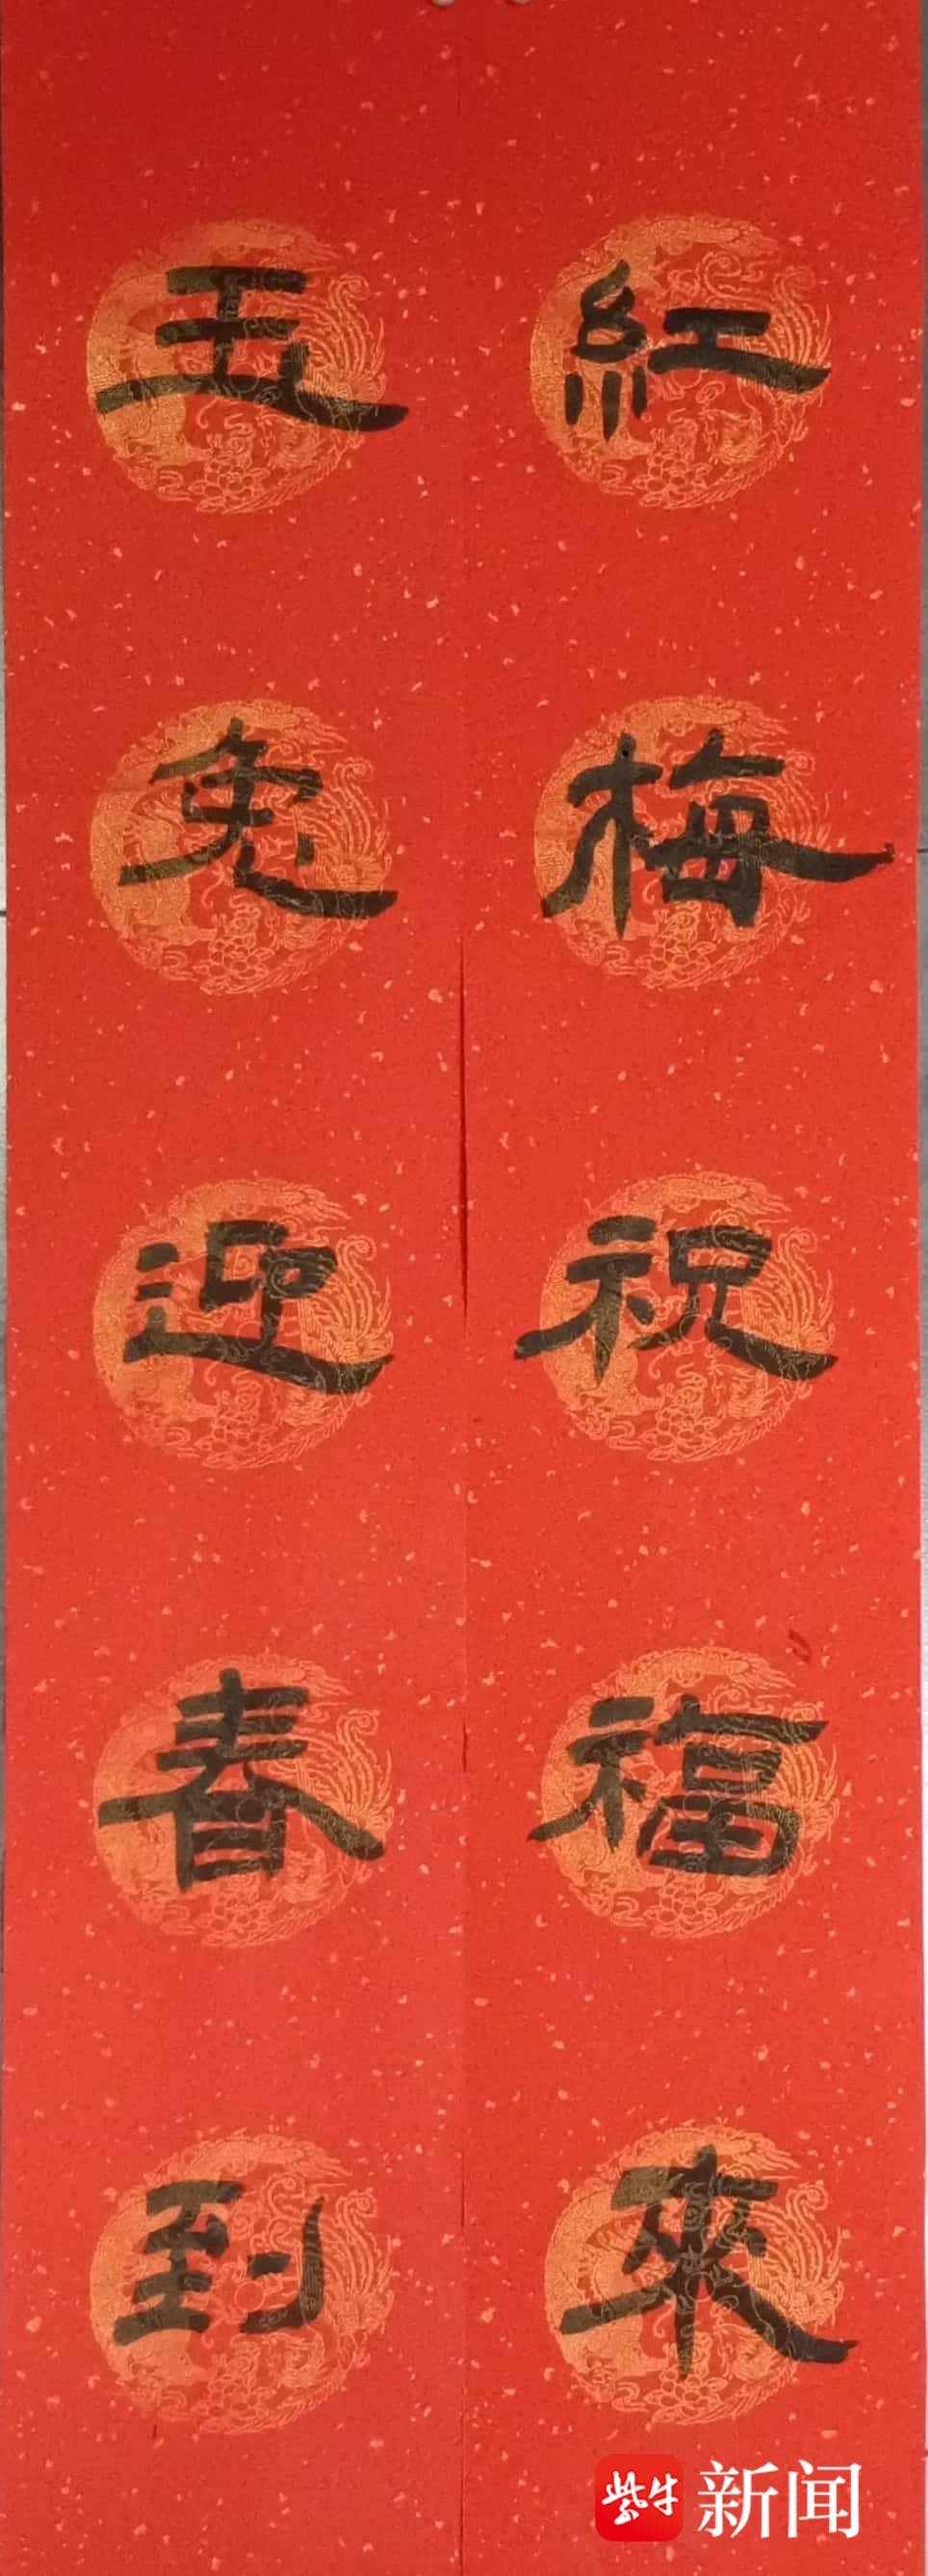 紅梅祝福來
玉兔迎春到
紫牛新闻